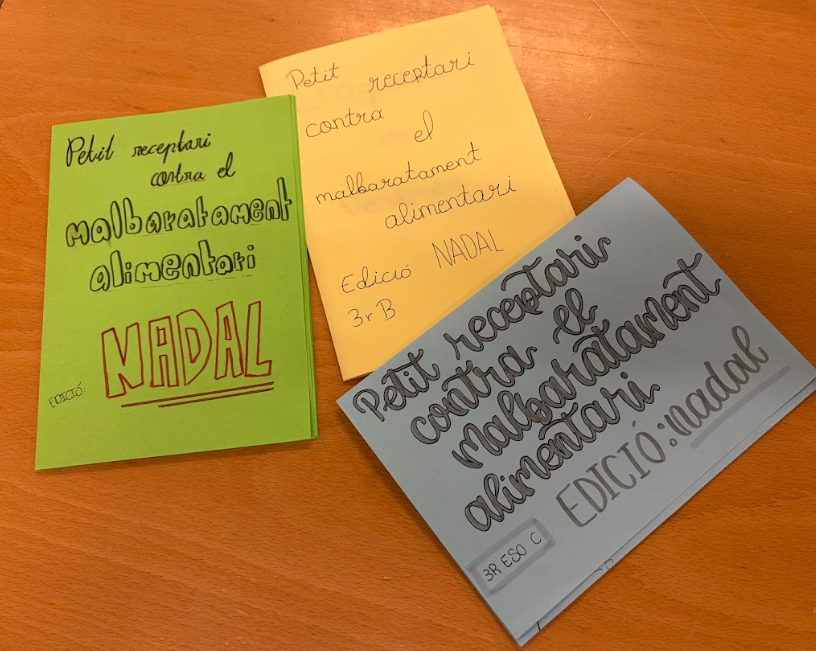 Petit receptari
contra el
malbaratament
alimentari
EDICIÓ:
NADAL
Petit receptari
contra
el
malbaratament
alimentari
Edició NADAL
3r B
Petit receptari
contra el
malbaratament
alimentari
EDICIÓ: nadal
3R ESO C